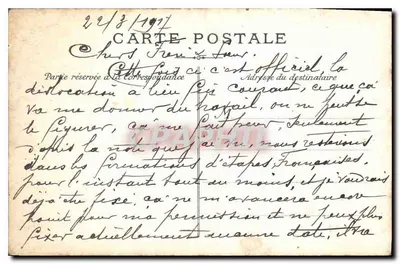 22/3/1917
CARTE POSTALE
Chers Frère & Sœur.
Partie réservée à la Correspondance
Adresse du destinataire
Cette fois ci c'est officiel, la
dislocation a lieu courant, ce que ça
va me donner du travail, on ne peut se
le figurer, Seulement
d'après la note que j'ai vu, nous resterions
dans les formations d'étapes Françaises,
pour l'instant tout au moins, et je voudrais
déjà être fixé, ça ne m'avancera encore
point pour ma permission et ne peux plus
fixer actuellement aucune date, il va